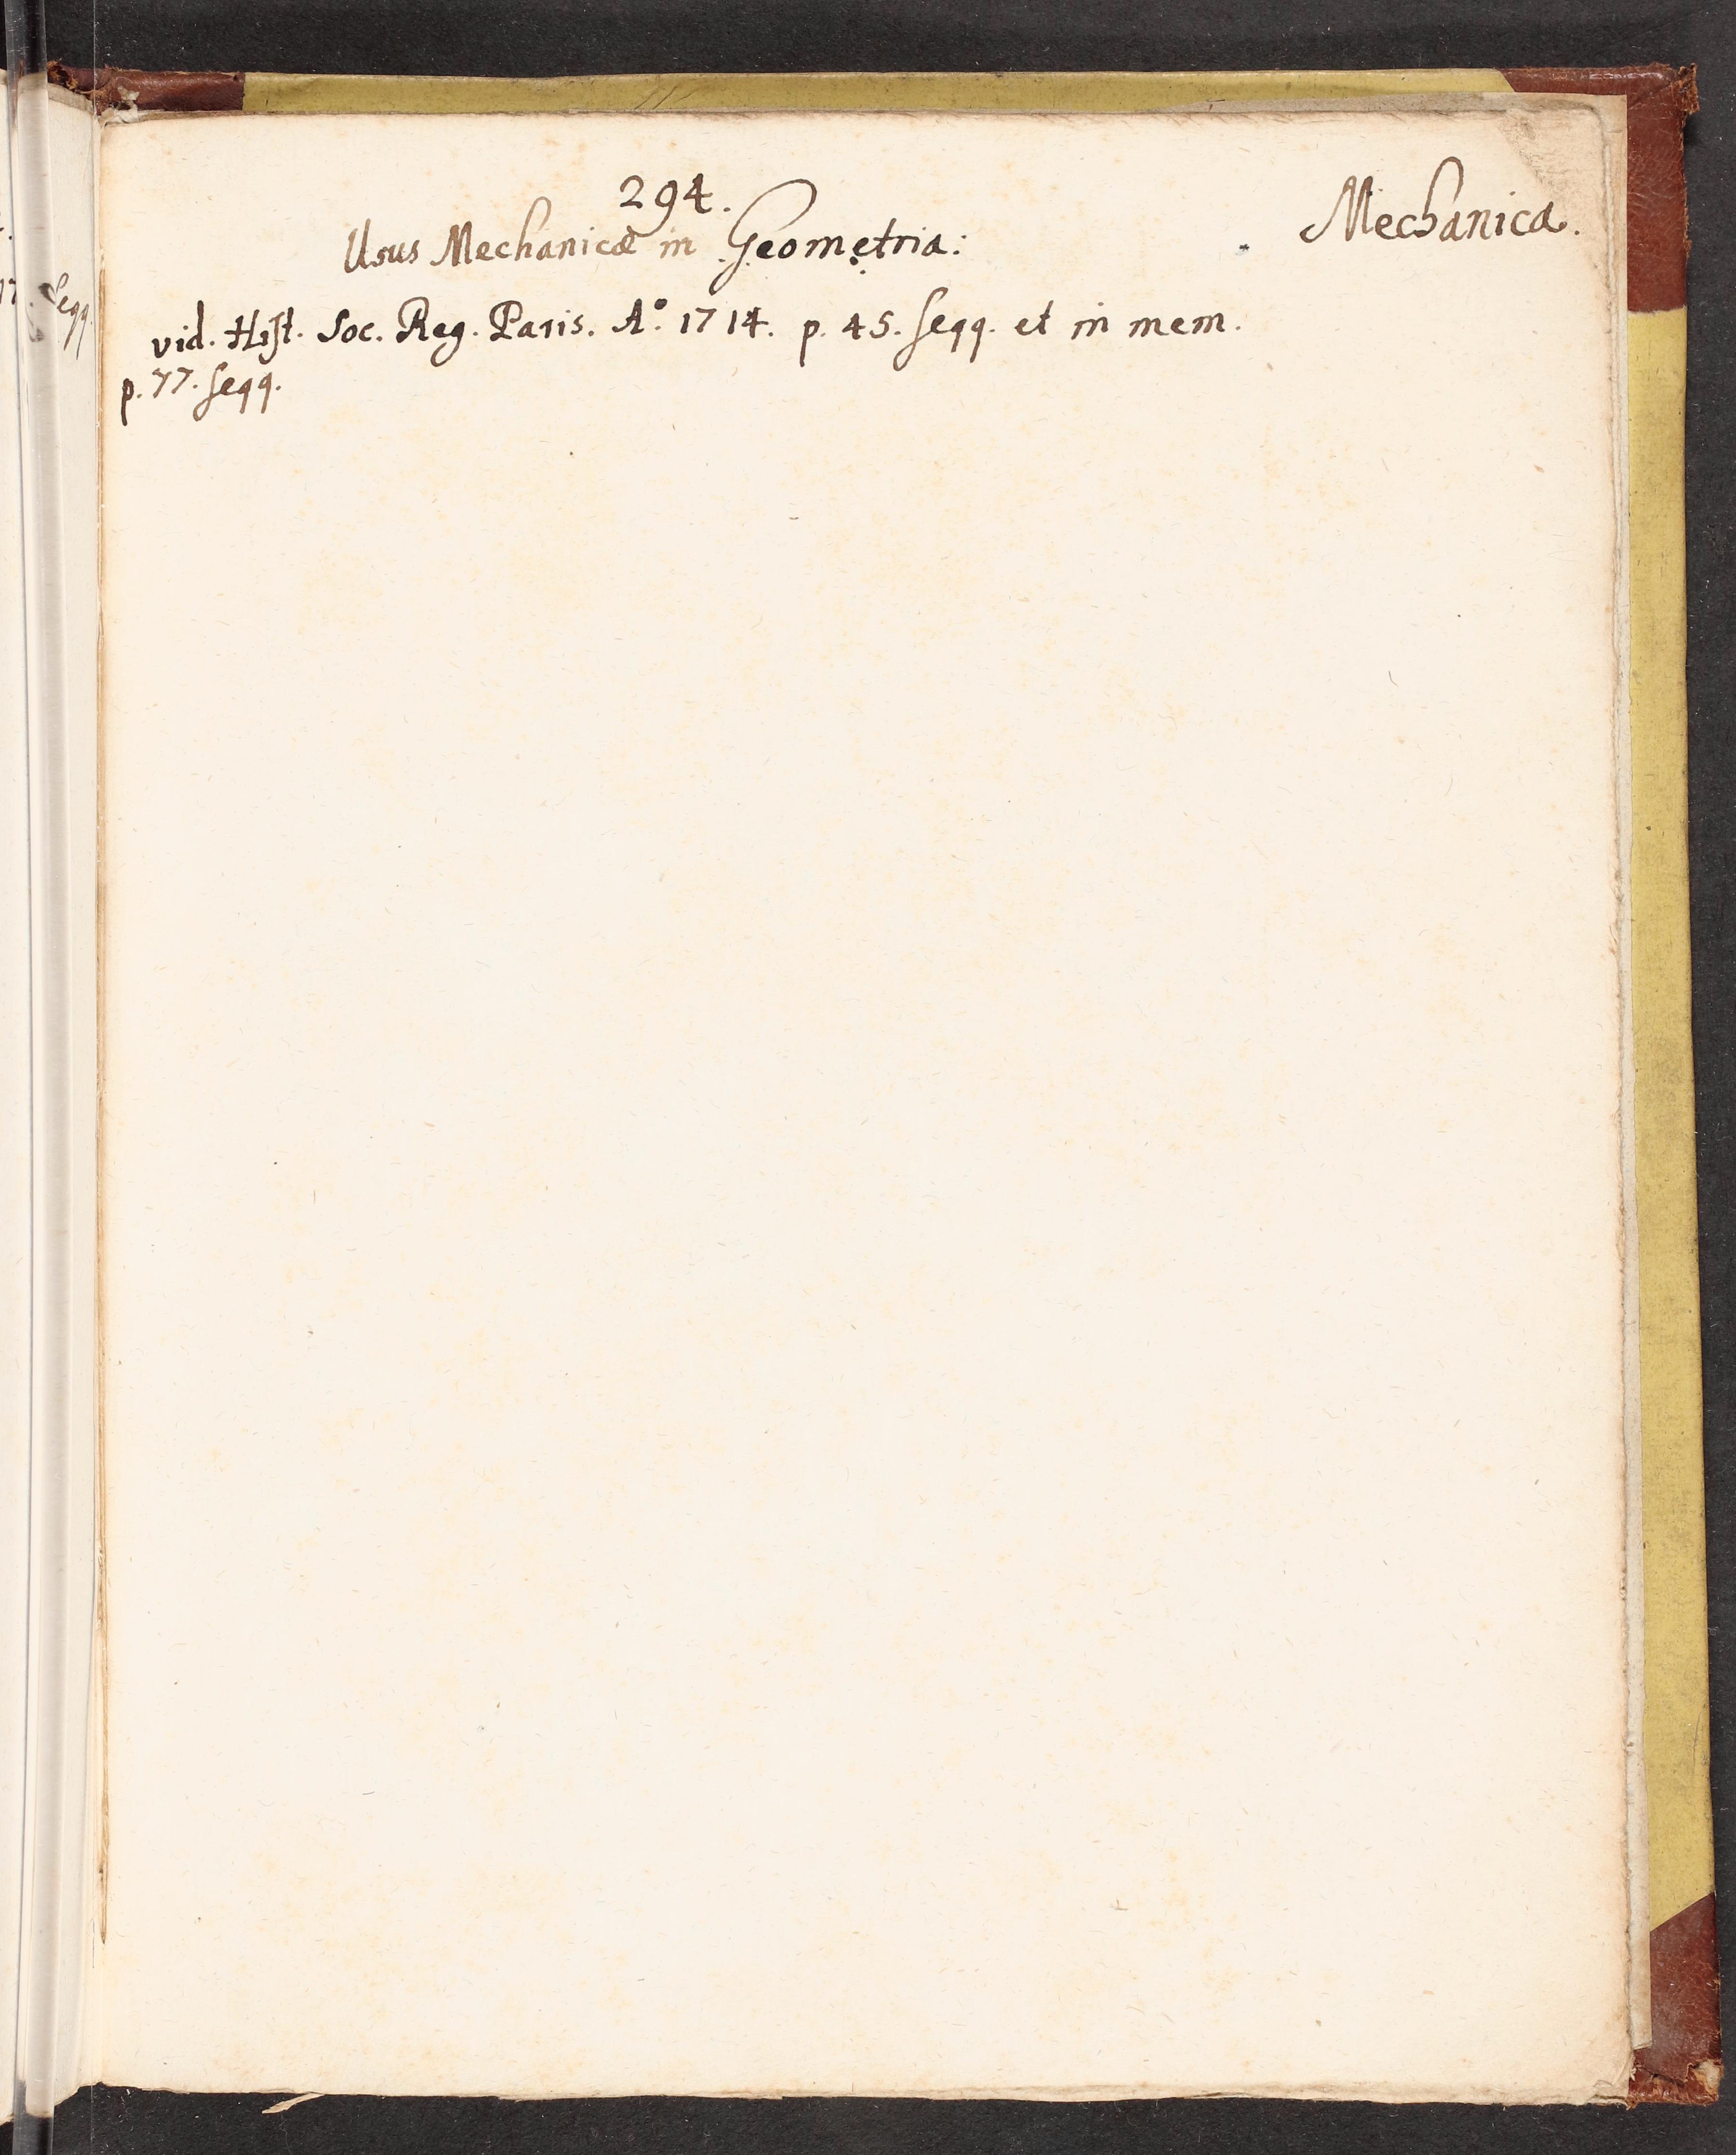 294.
Mechanica.
Usus Mechanicæ in Geometria:
vid. Hist. Soc. Reg. Paris. A.º 1714. p. 45. seqq. et in mem.
p. 77. seqq.
17. seqq.